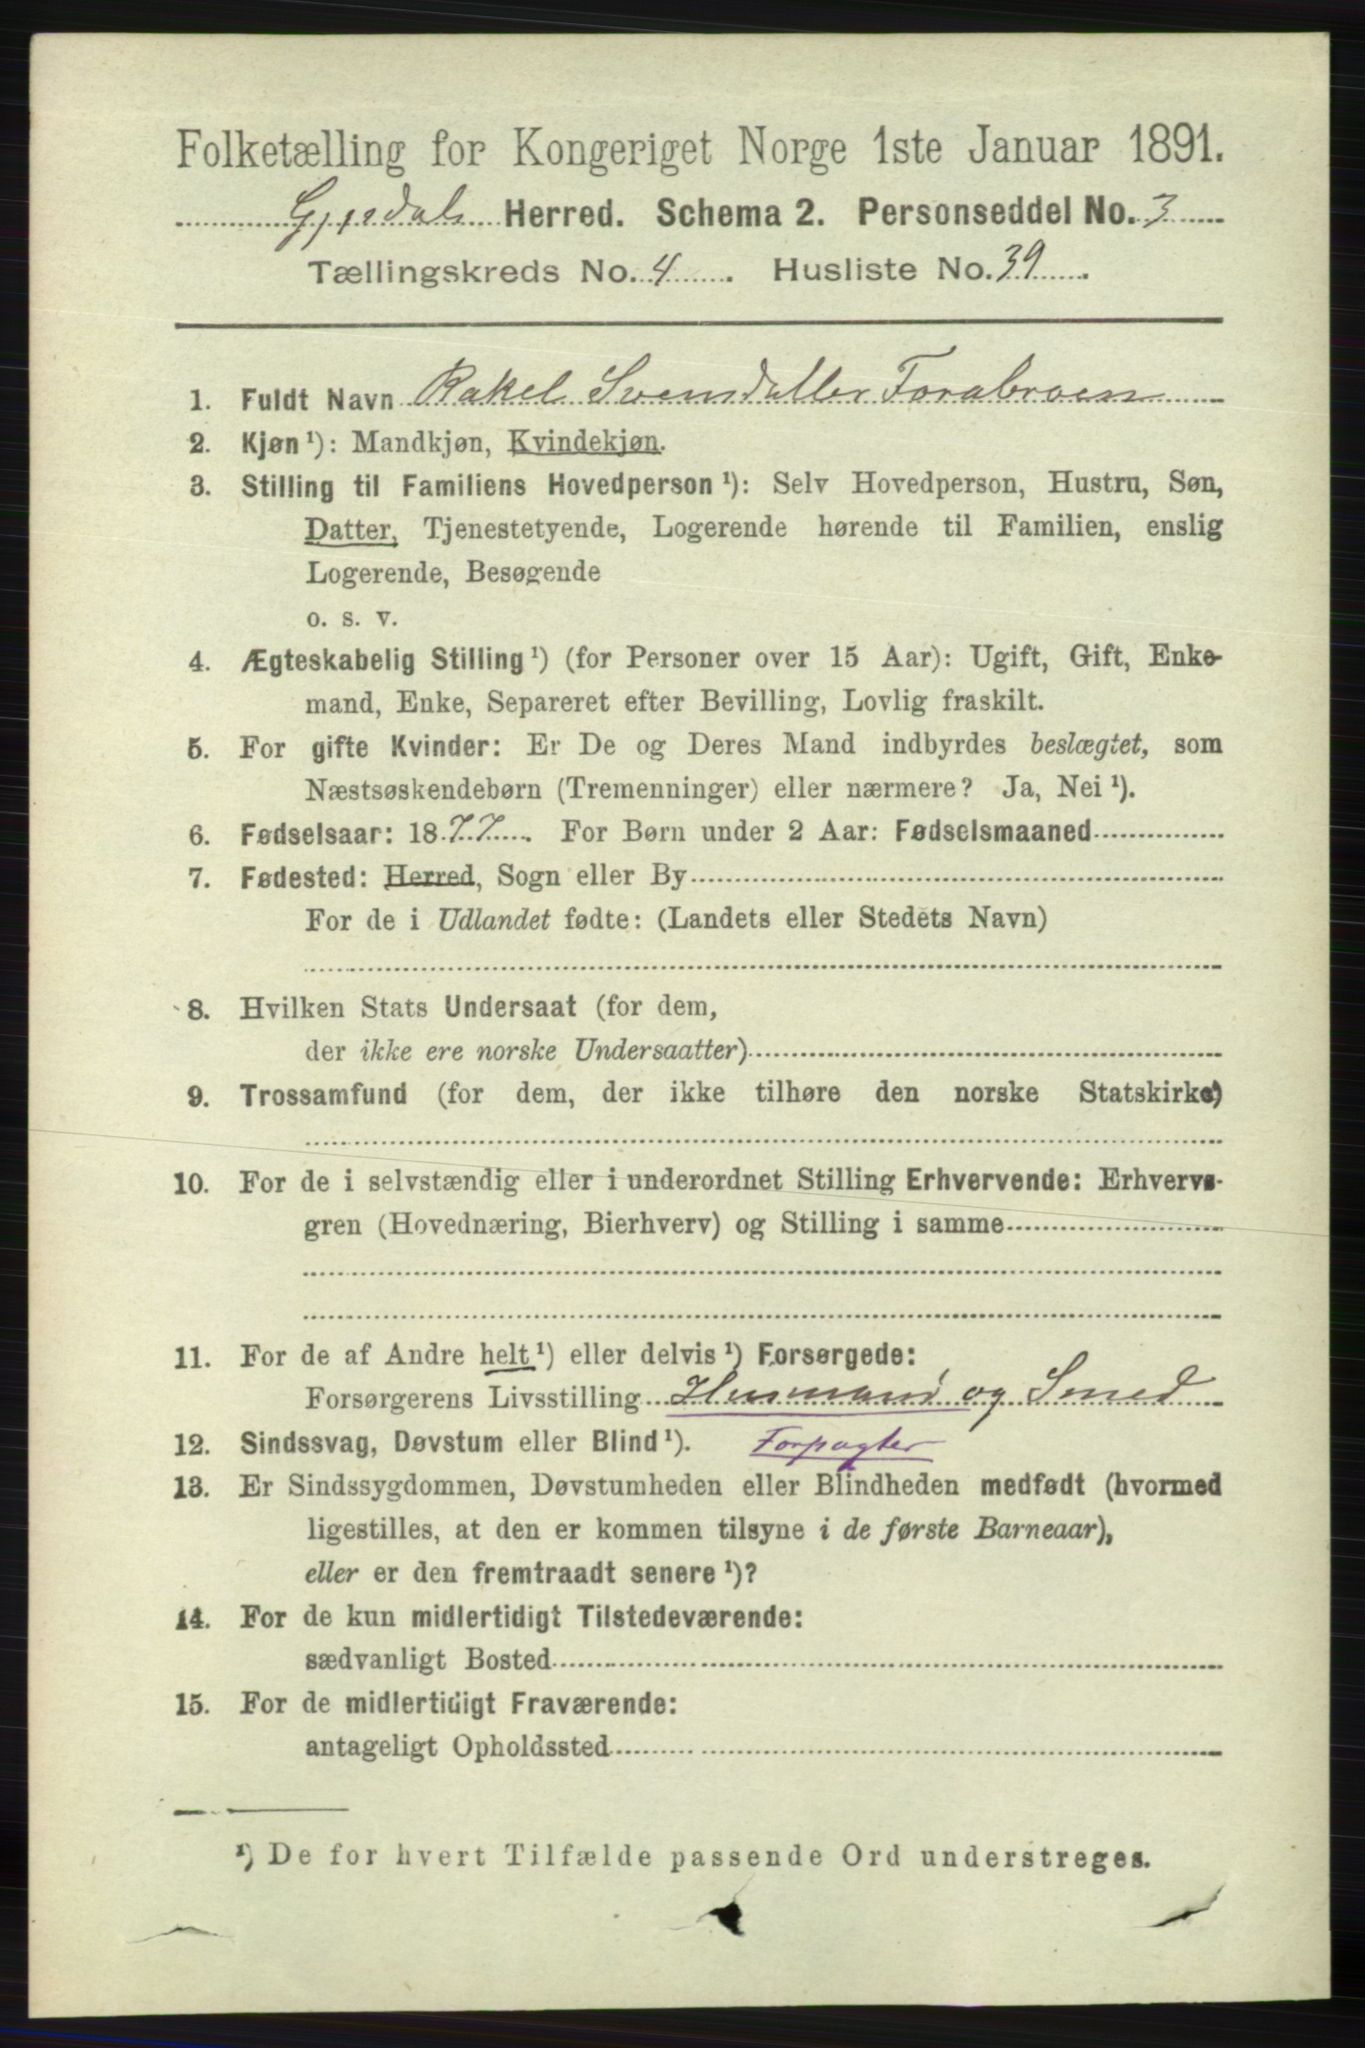 Folketælling for Kongeriget Norge 1ste Januar 1891.
Gjesdals Herred. Schema 2. Personseddel No. 3
Tællingskreds No. 4. Husliste No. 39.
1. Fuldt Navn Rakel Svensdatter Forabroen
2. Kjøn ¹): Mandkjøn, Kvindekjøn.
3. Stilling til Familiens Hovedperson ¹): Selv Hovedperson, Hustru, Søn,
Datter, Tjenestetyende, Logerende hørende til Familien, enslig
Logerende, Besøgende
o. s. v.
4. Ægteskabelig Stilling ¹) (for Personer over 15 Aar): Ugift, Gift, Enke-
mand, Enke, Separeret efter Bevilling, Lovlig fraskilt.
5. For gifte Kvinder: Er De og Deres Mand indbyrdes beslægtet, som
Næstsøskendebørn (Tremenninger) eller nærmere? Ja, Nei ¹).
6. Fødselsaar: 1877. For Børn under 2 Aar: Fødselsmaaned
7. Fødested: Herred, Sogn eller By
For de i Udlandet fødte: (Landets eller Stedets Navn)
8. Hvilken Stats Undersaat (for dem,
der ikke ere norske Undersaatter)
9. Trossamfund (for dem, der ikke tilhøre den norske Statskirke)
10. For de i selvstændig eller i underordnet Stilling Erhvervende: Erhvervs-
gren (Hovednæring, Bierhverv) og Stilling i samme
11. For de af Andre helt ¹) eller delvis ¹) Forsørgede:
Forsørgerens Livsstilling Husmand og Smed
12. Sindssvag, Døvstum eller Blind ¹). Forpagter
13. Er Sindssygdommen, Døvstumheden eller Blindheden medfødt (hvormed
ligestilles, at den er kommen tilsyne i de første Barneaar),
eller er den fremtraadt senere ¹)?
14. For de kun midlertidigt Tilstedeværende:
sædvanligt Bosted
15. For de midlertidigt Fraværende:
antageligt Opholdssted
¹) De for hvert Tilfælde passende Ord understreges.